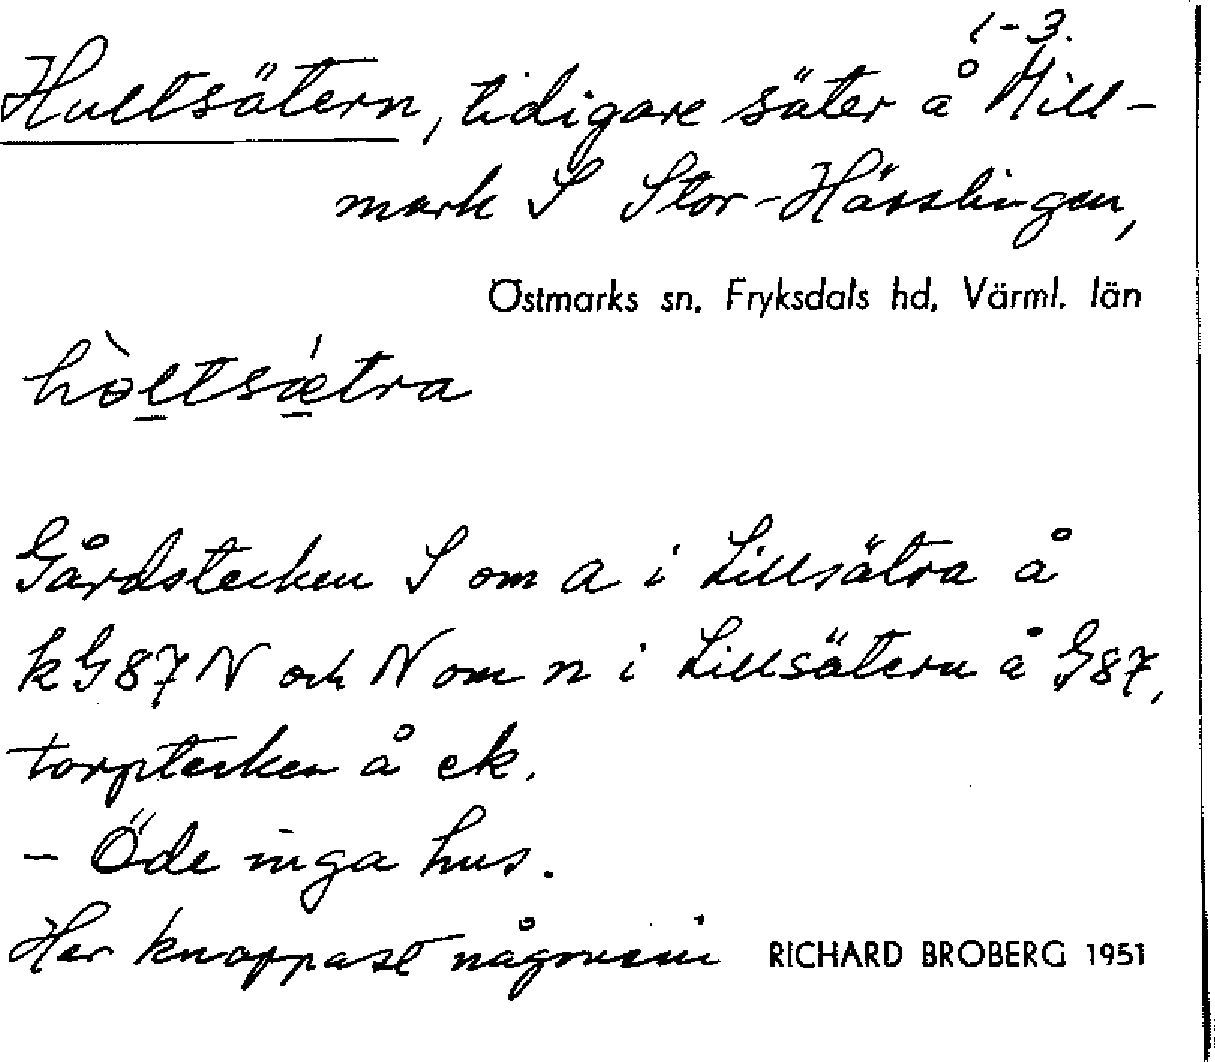 1-3.
Hultsätern, tidigare säter å Mill-
mark S Stor-Hässlingen,
Östmarks sn. Fryksdals hd. Värml. län
hòltsǽtra
Gårdstecken S om a i Lillsätra å
kG87N och N om n i Lillsätern å G87,
torptecken å ek.
- Öde inga hus.
Har knappast någonsin
RICHARD BROBERG 1951